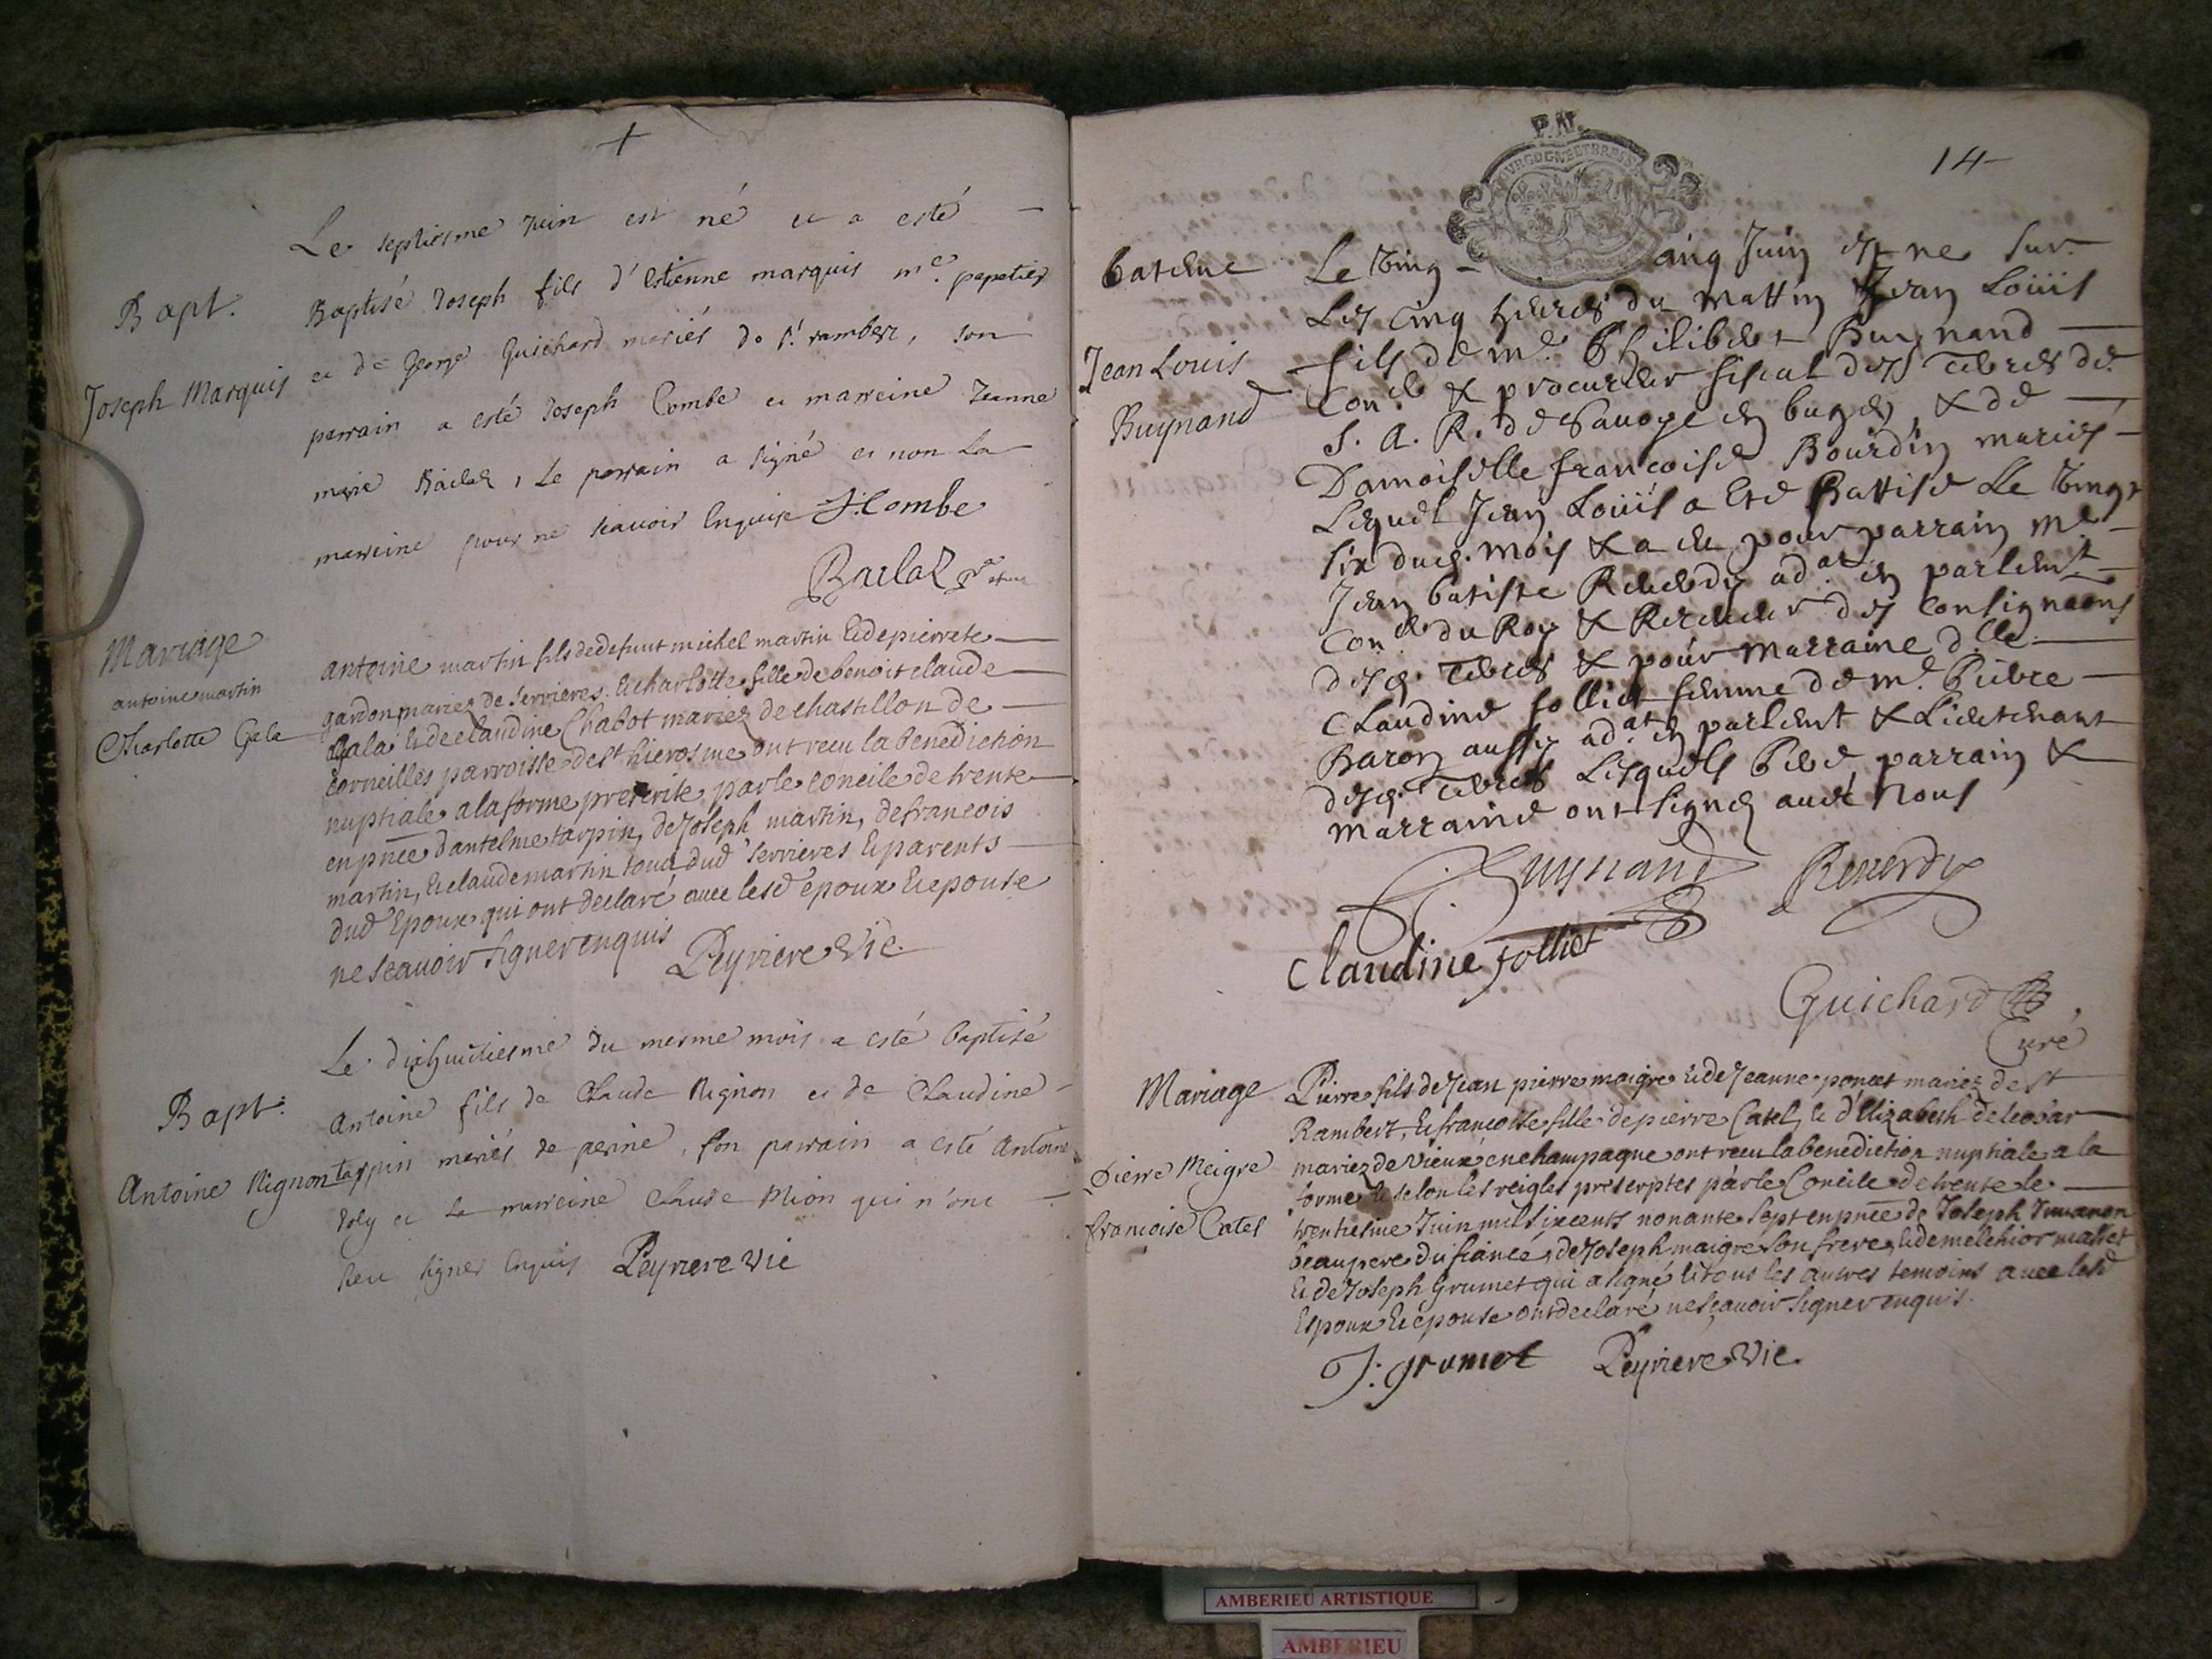 +
Le septiesme Juin est né et a esté
Bapt.
Baptisé Joseph fils d'Estienne marquis me. papetier
Joseph Marquis
et de George Guichard mariés de St. rambert, son
parrain a esté Joseph Combe et marreine Jeanne
marie, Le parrain a signé et non La
marreine pour ne scavoir Enquise J:Combe
Mariage
antoine martin
Charlotte Gala
antoine martin fils de defunt michel martin Et de pierrete
gardon mariez de Serrieres. Et charlotte fille de benoit claude
Gala Et de claudine Chabot mariez de chastillon de
Corneilles parroisse de st hierosme ont receu la benediction
nuptiale a la forme prescrite par le concile de trente
en pnce d'antelme tarpin, de Joseph martin, de francois
martin, Et claude martin tous dud Serrieres Et parents
dud Epoux qui ont declaré avec lesd epoux Et epouse
ne scavoir signer enquis Peyriere Vic.
Le dixhuitiesme du mesme mois a esté baptisé
Bapt.
Antoine fils de Claude Mignon et de Claudine
Antoine Mignon
tarpin mariés de perine, son parrain a esté Antoine
Joly et La marreine Claude Mion qui n'ont
sceu signer Enquis Peyriere Vic
14
P.N.
BOURGOGNE ET BRESSE
bateme
Le Ving cinq Juin est ne sur
Les cinq heures du mattin Jean Loüis
Jean Louis
Buynand
fils de me. Philibert Buynand
Coner & procureur fiscal des Terres de
S. A. R. de Savoye en bugey, & de
Damoiselle francoise Bourdin mariés
Lequel Jean Loüis a Eté Battisé Le Vingt
six dud. mois & a eu pour parrain me
Jean batiste Reverdy adat en parlemt
Coner du Roy & Receveur des Consignaons
desd. Terres & pour marraine dlle
Claudine folliet femme de me. Pierre
Baron aussy adat en parlemt & Lieutenant
desd. Terres Lesquels Pere parrain &
marraine ont signez avec Nous
Buynand Reverdy
Claudine folliet
Guichard
Curé
Mariage
Pierre Meigre
francoise Catel
Pierre fils de Jean pierre maigre Et de Jeanne poncet mariez de st
Rambert, Et françoise fille de pierre Catel, Et d'Elizabeth de
mariez de Vieux en champagne ont receu la benediction nuptiale a la
forme Et selon les reigles prescriptes par le Concile de trente le
trentiesme Juin mil six cents nonante sept en pnce de Joseph
beaupere du fiancé, de Joseph maigre son frere, Et de melchior mallet
Et de Joseph Grumet qui a signé Et tous les autres temoins avec lesd
Espoux Et epouse ont declaré ne sçavoir signer enquis.
J: grumet Peyriere Vic.
AMBERIEU ARTISTIQUE
AMBERIEU